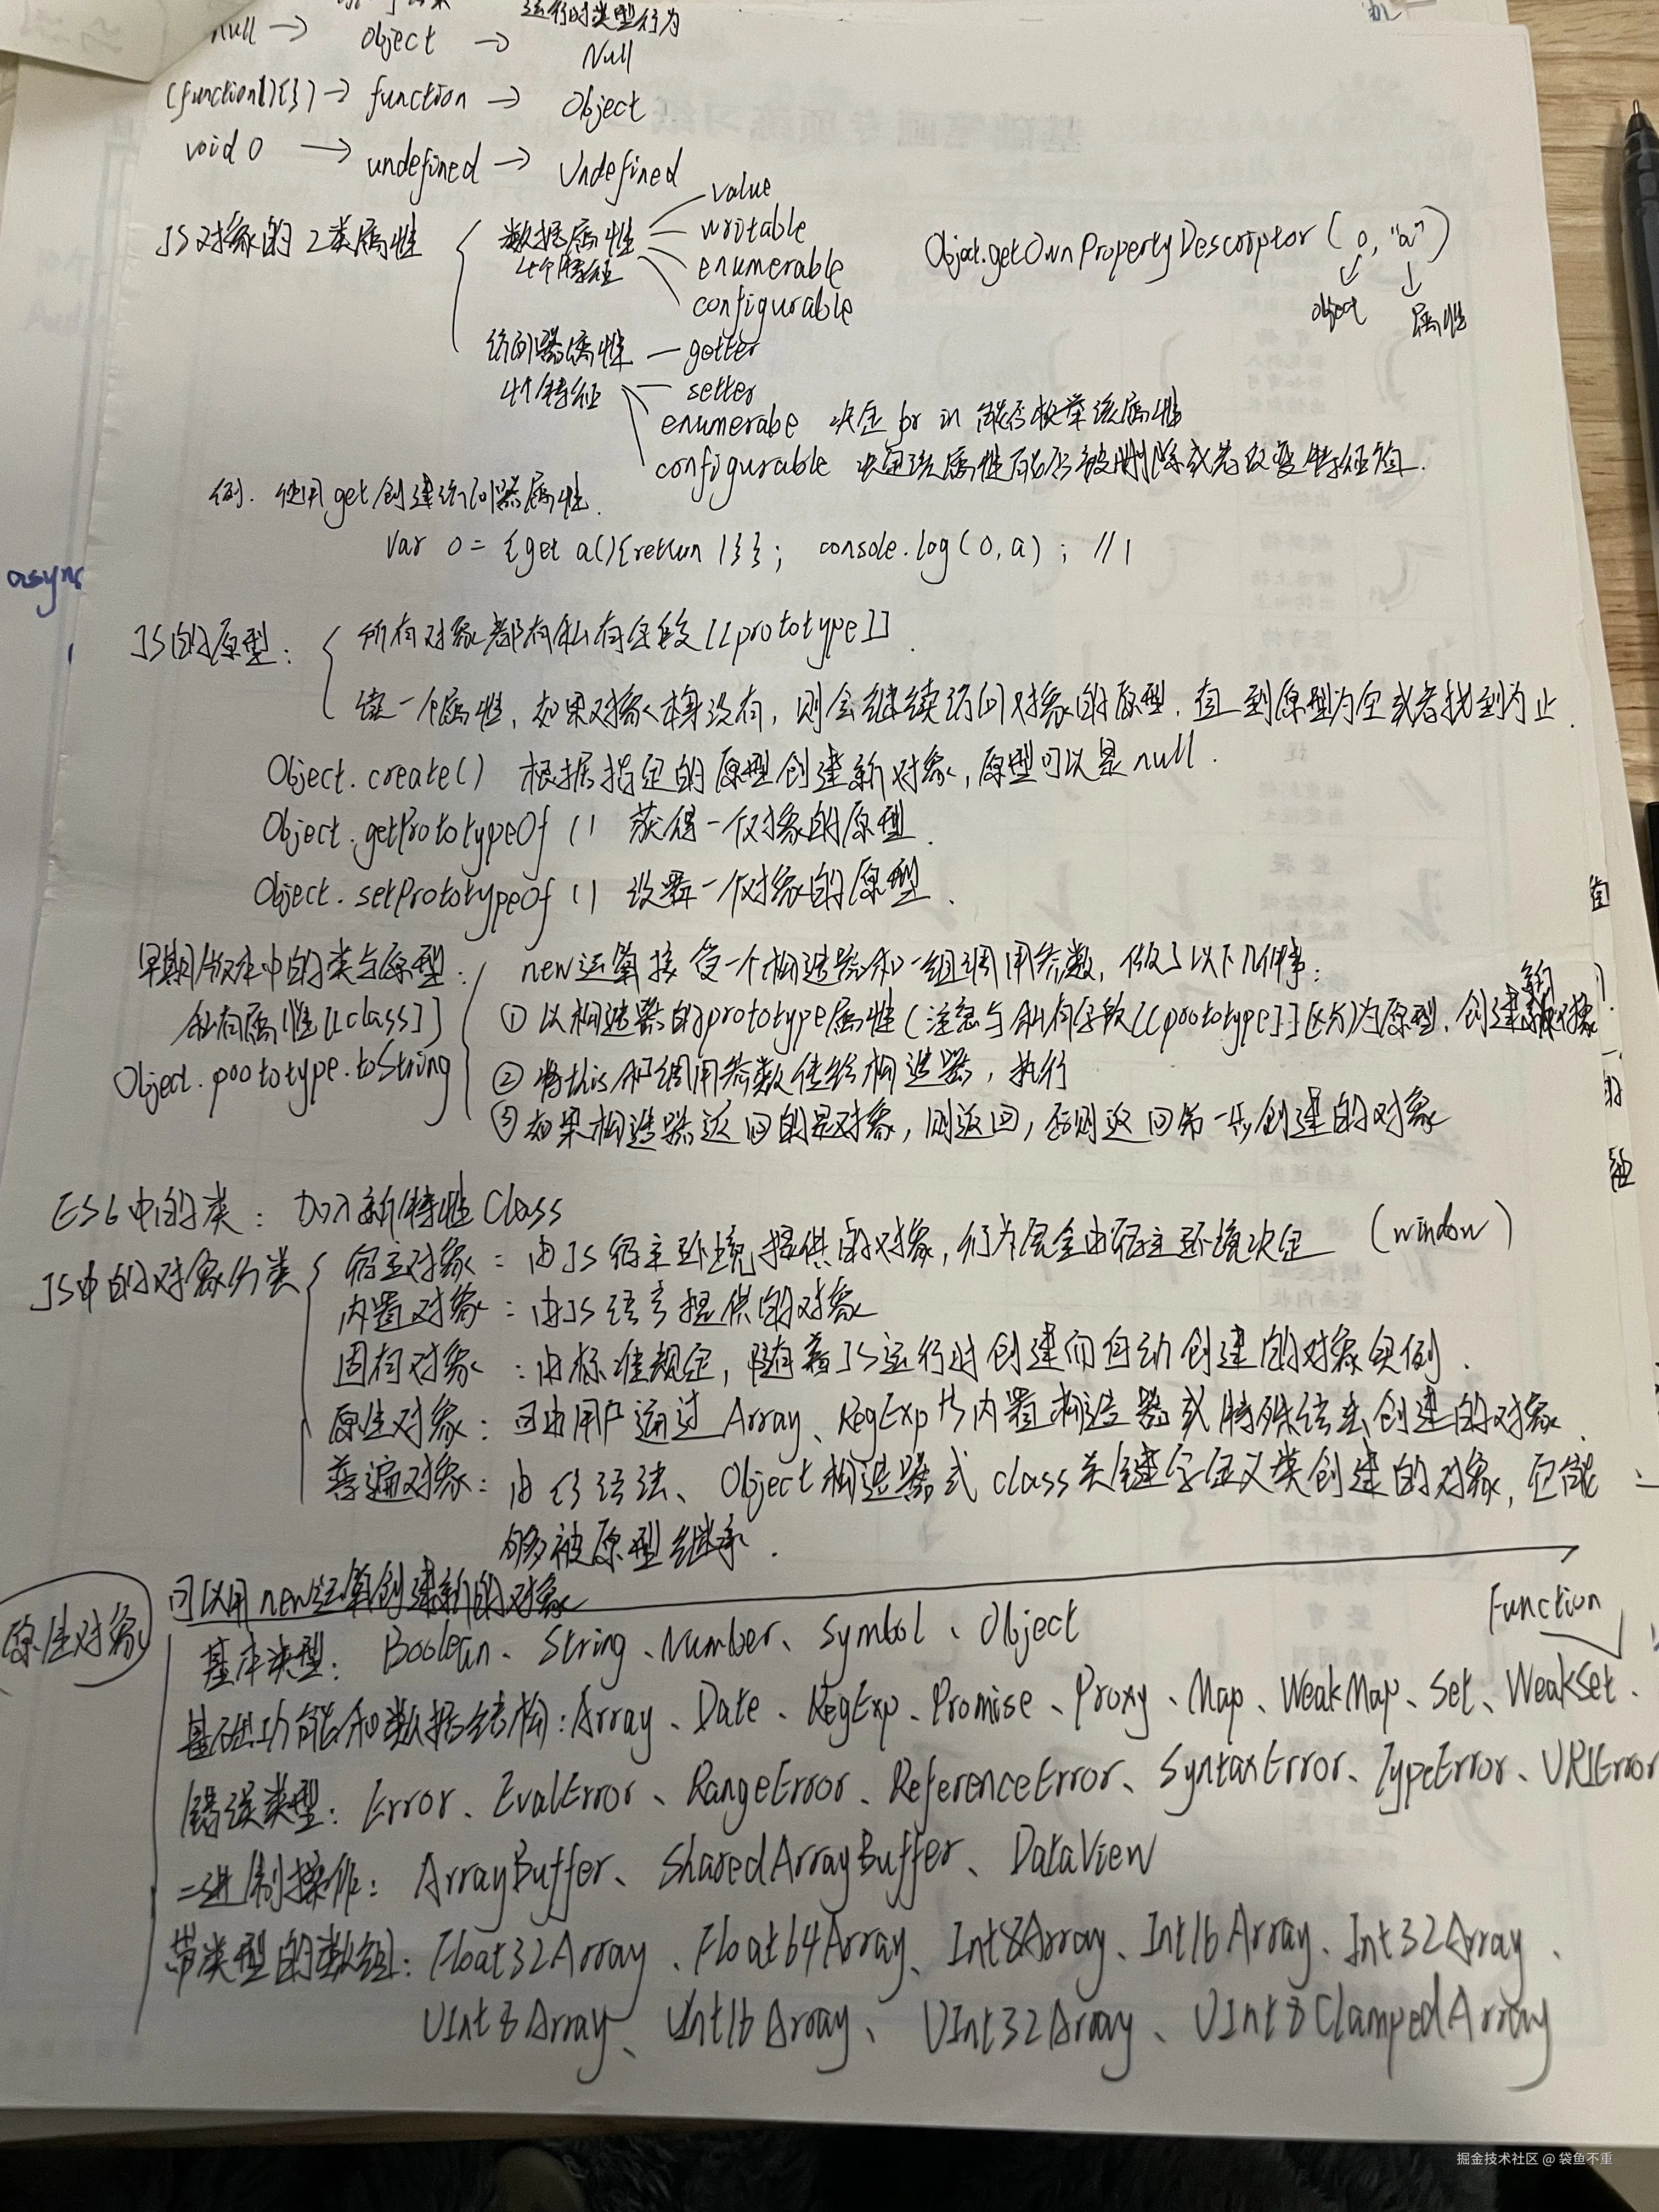 运行时类型行为
null → object → Null
(function(){}) → function → Object
void 0 → undefined → Undefined
JS对象的2类属性
数据属性
4个特征
value
writable
enumerable
configurable
Object.getOwnPropertyDescriptor(o,"a")
object 属性
访问器属性 — getter
4个特征 — setter
enumerabe 决定 for in 能否枚举该属性
configurable 决定该属性能否被删除或者改变特征值.
例. 使用get创建访问器属性.
var o = {get a(){return 1}}; console.log(o,a); //1
async
JS的原型: 所有对象都有私有字段[[prototype]].
读一个属性, 如果对象本身没有, 则会继续访问对象的原型, 直到原型为空或者找到为止.
Object.create() 根据指定的原型创建新对象, 原型可以是null.
Object.getPrototypeOf () 获得一个对象的原型.
Object.setPrototypeOf () 设置一个对象的原型.
早期版本中的类与原型:
私有属性[[class]]
Object.prototype.toString
new运算接受一个构造器和一组调用参数, 做了以下几件事:
① 以构造器的prototype属性(注意与私有字段[[prototype]]区分)为原型, 创建新对象
② 将this和调用参数传给构造器, 执行
③ 如果构造器返回的是对象, 则返回, 否则返回第一步创建的对象
ES6中的类: 加入新特性Class
JS中的对象分类
宿主对象: 由JS宿主环境提供的对象, 行为完全由宿主环境决定 (window)
内置对象: 由JS语言提供的对象
固有对象: 由标准规定, 随着JS运行时创建而自动创建的对象实例.
原生对象: 可由用户通过Array、RegExp等内置构造器或特殊语法创建的对象.
普通对象: 由{}语法、Object构造器或class关键字定义类创建的对象, 它能
够被原型继承.
原生对象
可以用new运算创建新的对象
Function
基本类型: Boolean、String、Number、Symbol、Object
基础功能和数据结构: Array、Date、RegExp、Promise、Proxy、Map、WeakMap、Set、WeakSet.
错误类型: Error、EvalError、RangeError、ReferenceError、SyntaxError、TypeError、URIError
二进制操作: ArrayBuffer、SharedArrayBuffer、DataView
带类型的数组: Float32Array、Float64Array、Int8Array、Int16Array、Int32Array、
UInt8Array、UInt16Array、UInt32Array、UInt8ClampedArray
掘金技术社区 @ 袋鱼不重